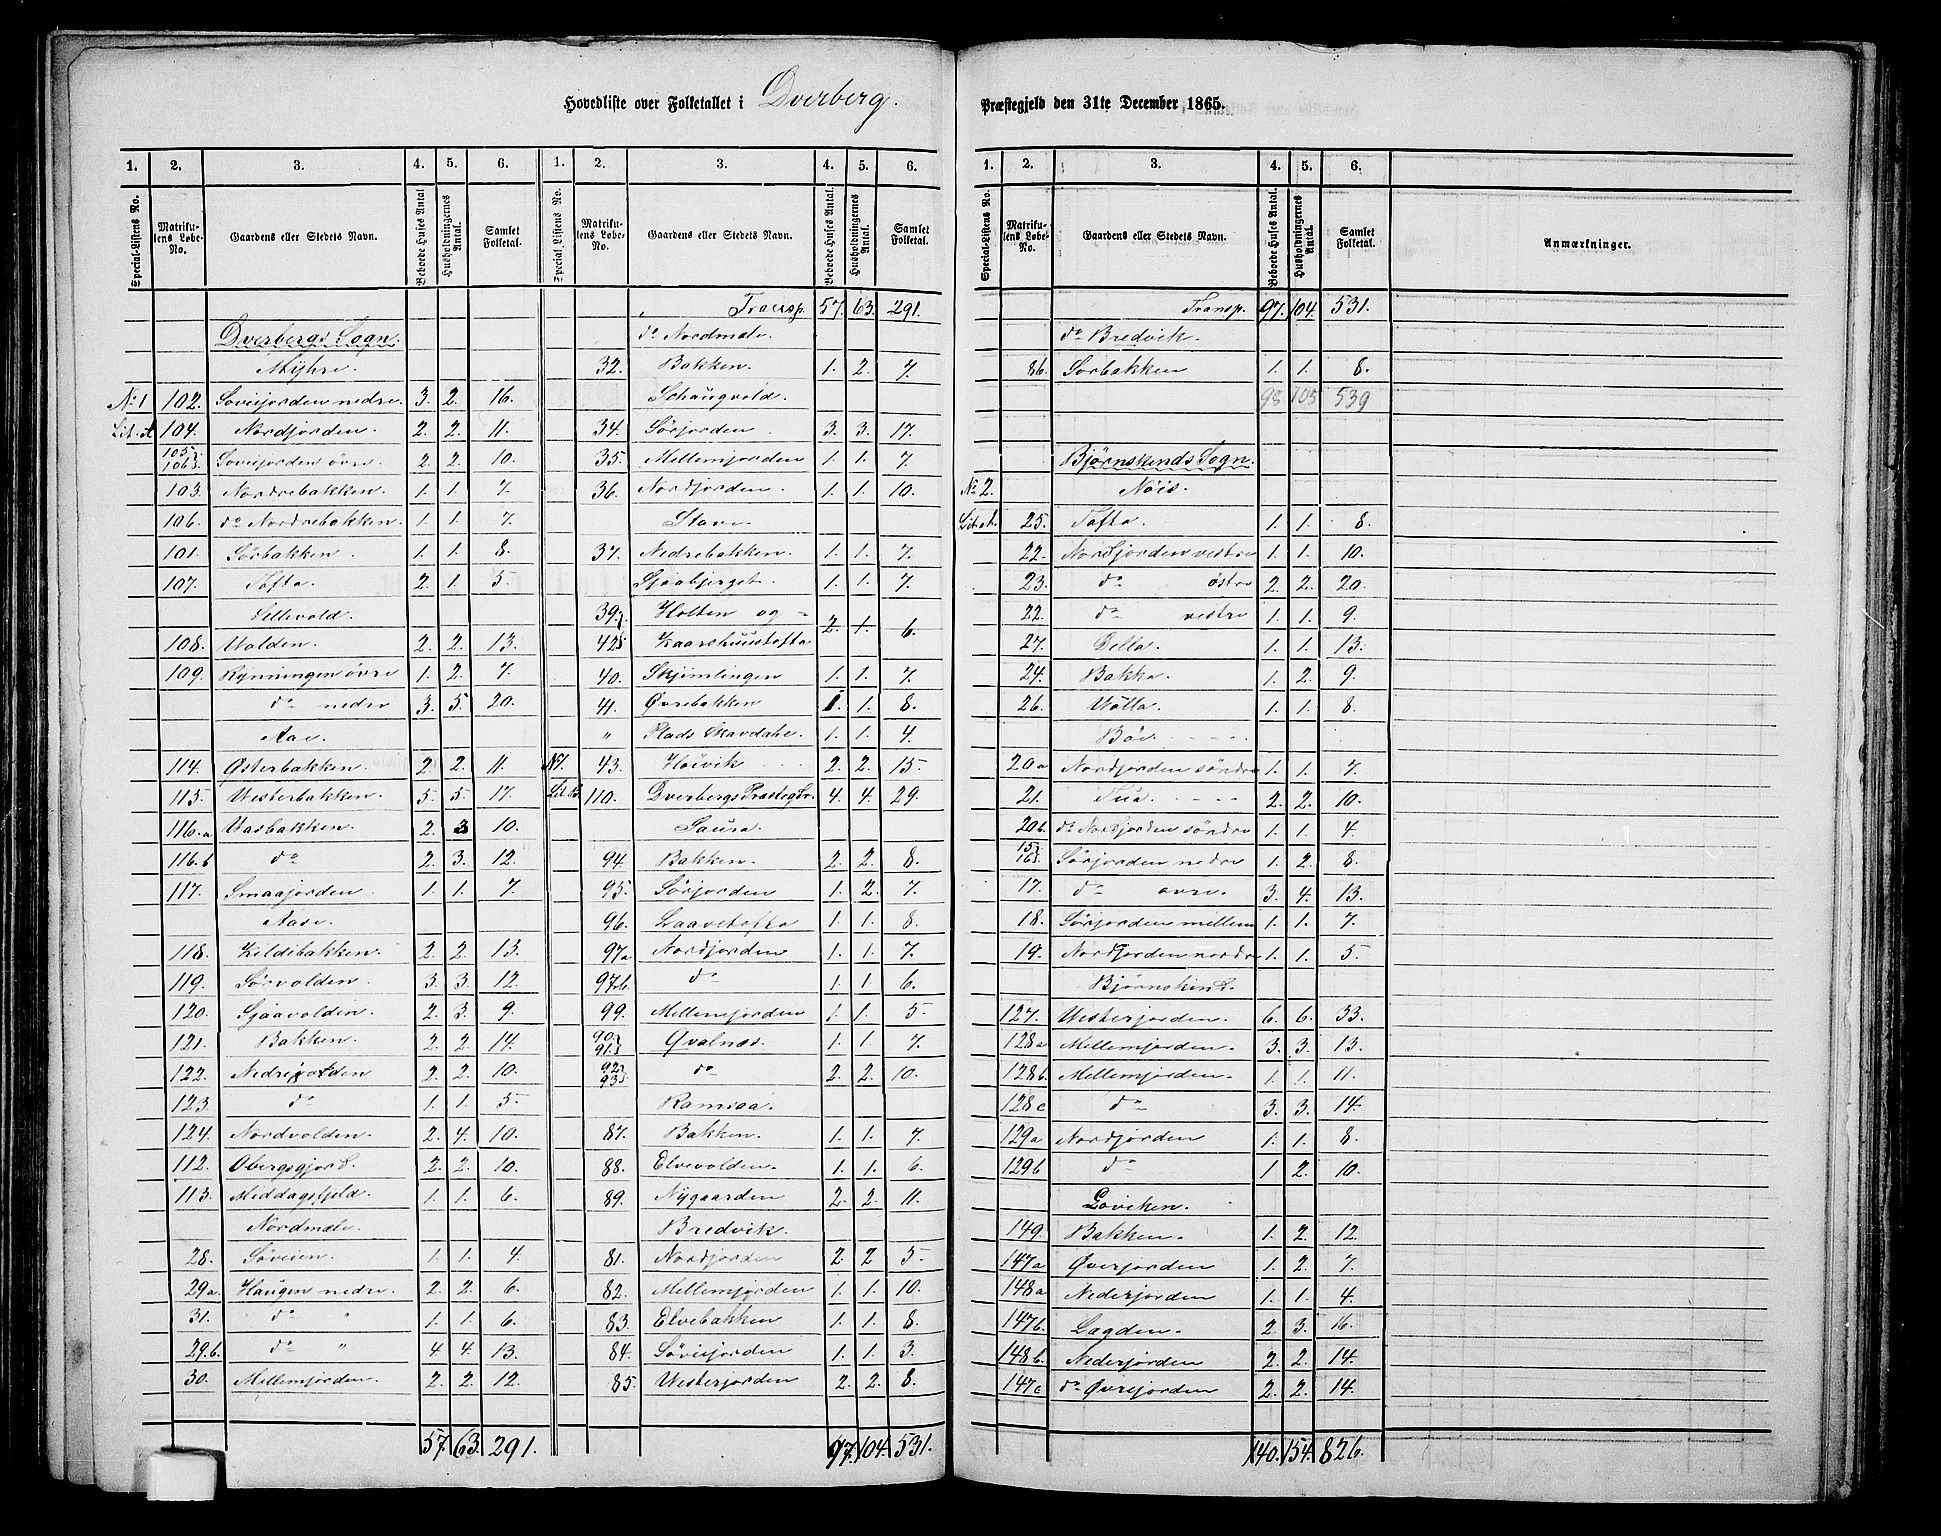 Hovedliste over Folketallet i Dverberg.
1. 2. 3. 4. 5. 6. 1. 2. 3. 4. 5. 6.
Special-Listens No. Matrikulens Løbe-No. Gaardens eller Stedets Navn. Beboede Huses Antal Husholdningernes Antal. Samlet Folketal. Special-Listens No. Matrikulens Løbe-No. Gaardens eller Stedets Navn. Beboede Huses Antal. Husholdningernes Antal. Samlet Folketal.
Dverbergs Sogn.
Myhre.
No 1 102. Søveijorden nedre. 3. 2. 16.
Lit. A 104. Nordjorden. 2. 2. 11.
105. 106. Søveijorden övre 2. 2. 10.
103. Nordrebakken. 1. 1. 7.
106. do Nordrebakken. 1. 1. 7.
101. Sörbakken. 1. 1. 8.
107. Tofta. 2. 1. 5.
Sellevold.
108. Volden. 2. 2. 13.
109. Rynningen övre 1. 2. 7.
do nedre 3. 5. 20.
Aae.
114. Østerbakken. 2. 2. 11.
115. Vesterbakken. 5. 5. 17.
116.a Vasbakken. 2. 3 10.
116.b do 2. 3. 12.
117. Smaajorden. 1. 1. 7.
Aase.
118. Kildebakken. 2. 2. 13.
119. Sörvolden. 3. 3. 12.
120. Sjaavolden. 2. 3. 9.
121. Bakken. 2. 2. 14.
122. Nedrejorden 2. 2. 10.
123. do 1. 1. 5.
124. Nordvolden. 2. 4. 10.
112. Obergsgjord. 2. 2. 10.
113. Middagsfjeld. 1. 1. 6.
Nordmele.
28. Söveien. 1. 1. 4.
29a Haugen nedre. 2. 2. 6.
31. do " 1. 1. 6.
29.b. do " 4 4. 13.
30. Mellemjorden. 2. 2. 12.
57. 63. 291.
Transp. 57. 63. 291.
do Nordmele.
32. Bakken. 1. 2. 7.
Schaugvold.
34. Sörjorden. 3. 3. 17.
35. Mellemjorden 1. 1. 7.
36. Nordjorden. 1. 1. 10.
Stave.
37. Nedrebakken. 1. 1. 7.
Sjaabjerget. 1. 1. 7.
39. Holten og
42. Kaarshuustofta 2. 1. 6.
40. Skjemlingen 1. 1. 7.
41. Øvrebakken 1. 1. 8.
" Plads Skavdahe. 1. 1. 4.
N7. 43. Höivik 2. 2. 15.
Lit. B. 110. Dverbergs Præstegd. 4. 4. 29.
Saura.
94. Bakken. 2. 2. 8.
95. Sörjorden 1. 2. 7.
96. Laavetofta 1. 1. 8.
97a Nordjorden 1. 1. 7.
97b. do 1. 1. 6.
99. Mellemjorden 1. 1. 5.
90. 91. Qvalnæs. 1. 1. 7.
92. 93. do 2. 2. 10.
Ramsaa.
87. Bakken. 1. 1. 7.
88. Elvevolden. 1. 1. 6.
89. Nygaarden 2. 2. 11.
Bredvik.
81. Nordjorden 2. 2 5.
82. Mellemjorden 1. 1. 10.
83. Elvebakken 1. 1. 8.
84. Söveijorden 1. 1. 3.
85. Vesterjorden 2. 2. 8.
97. 104. 531.
Præstegjeld den 31te December 1865.
1. 2. 3. 4. 5. 6.
Special-Listens No. Matrikulens Løbe-No. Gaardens eller Stedets Navn. Beboede Huses Antal. Husholdningernes Antal. Samlet Folketal. Anmærkninger.
Transp. 97. 104. 531.
do Bredvik.
86. Sörbakken 1. 1. 8.
98 105 539
Björnskinds Sogn.
No 2. Nöis.
Lit. A. 25. Tofta. 1. 1. 8.
22. Nordjorden vestre 1. 1. 10.
23. do östre 2. 2. 20.
22. do vestre 1. 1. 9.
27. Della. 1. 1. 13.
24. Bakka. 1. 2. 9.
26. Volla. 1. 1. 8.
Böe.
20a Nordjorden söndre 1. 1. 7.
21. Tua. 2. 2. 10.
20b. do Nordjorden söndre 1. 1. 4.
15. 16. Sörjorden nedre 1. 2. 8.
17. do övre. 3. 4. 13.
18. Sörjorden mellem 1. 1. 7.
19. Nordjorden nordre 1. 1. 5.
Björnskind.
127. Vesterjorden. 6. 6. 33.
128a Mellemjorden. 3. 3. 13.
128b. Mellemjorden. 1. 1. 11.
128c do 3. 3. 14.
129a Nordjorden 1. 1. 8.
129b do 1. 2. 10.
Loviken.
149. Bakken. 1. 2. 12.
147a Øverjorden 1. 2. 7.
148a Nederjorden 1. 1. 4.
147b. Lagden. 2. 3. 16.
148b. Nederjorden 2. 2. 14.
147c do Øvrejorden 2. 2. 14.
140. 154. 826.